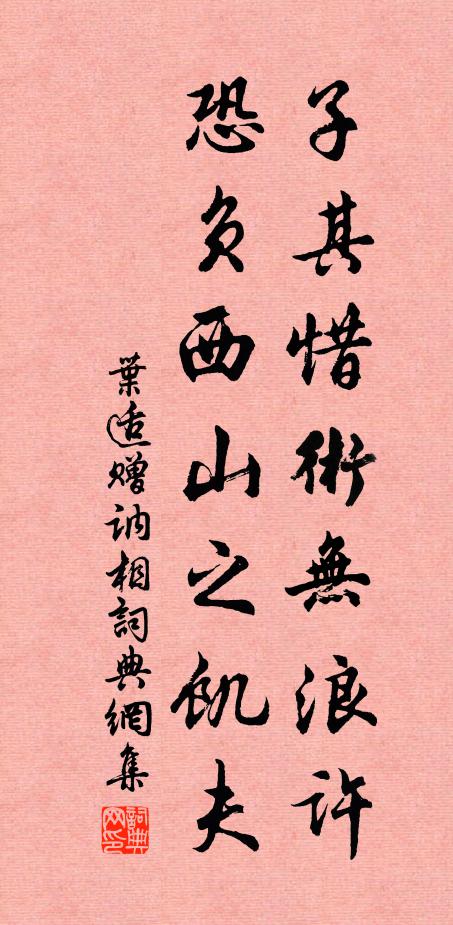 子其惜術無浪許
恐負西山之飢夫
葉适贈訥相詞典網集
詞典網印